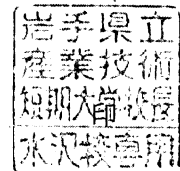 岩手県立
産業技術
短期大学校長
水沢校専用